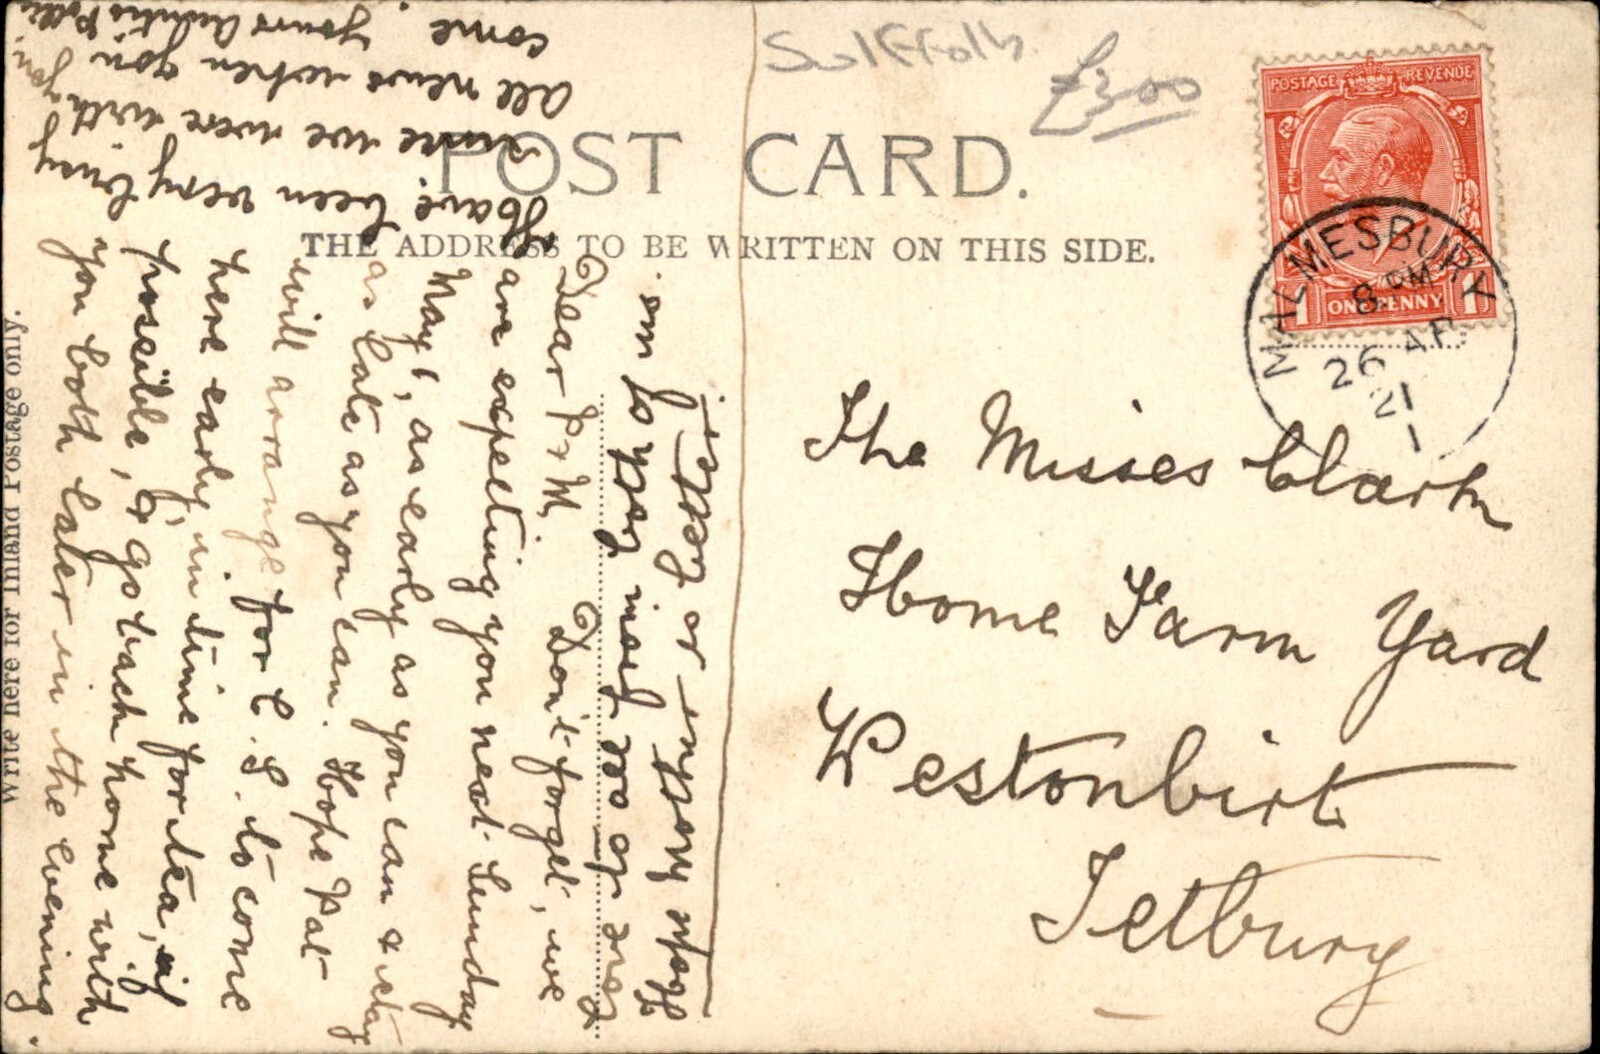 Suffolk
£3.00
POST CARD.
THE ADDRESS TO BE WRITTEN ON THIS SIDE.
Write here for Inland Postage only.
POSTAGE REVENUE
ONE PENNY
MALMESBURY
8 PM
26 AP
21
The Misses Clark
Home Farm Yard
Westonbirt
Tetbury
Dear P & M Don't forget, we
are expecting you next Sunday
May 1, as early as you can & stay
as late as you can. Hope Pat
will arrange for C. S. to come
here early, in time for tea, if
possible, & go back home with
you both later in the evening.
Have been very busy
since we were with you.
All news when you
come. Yours Auntie Pollie